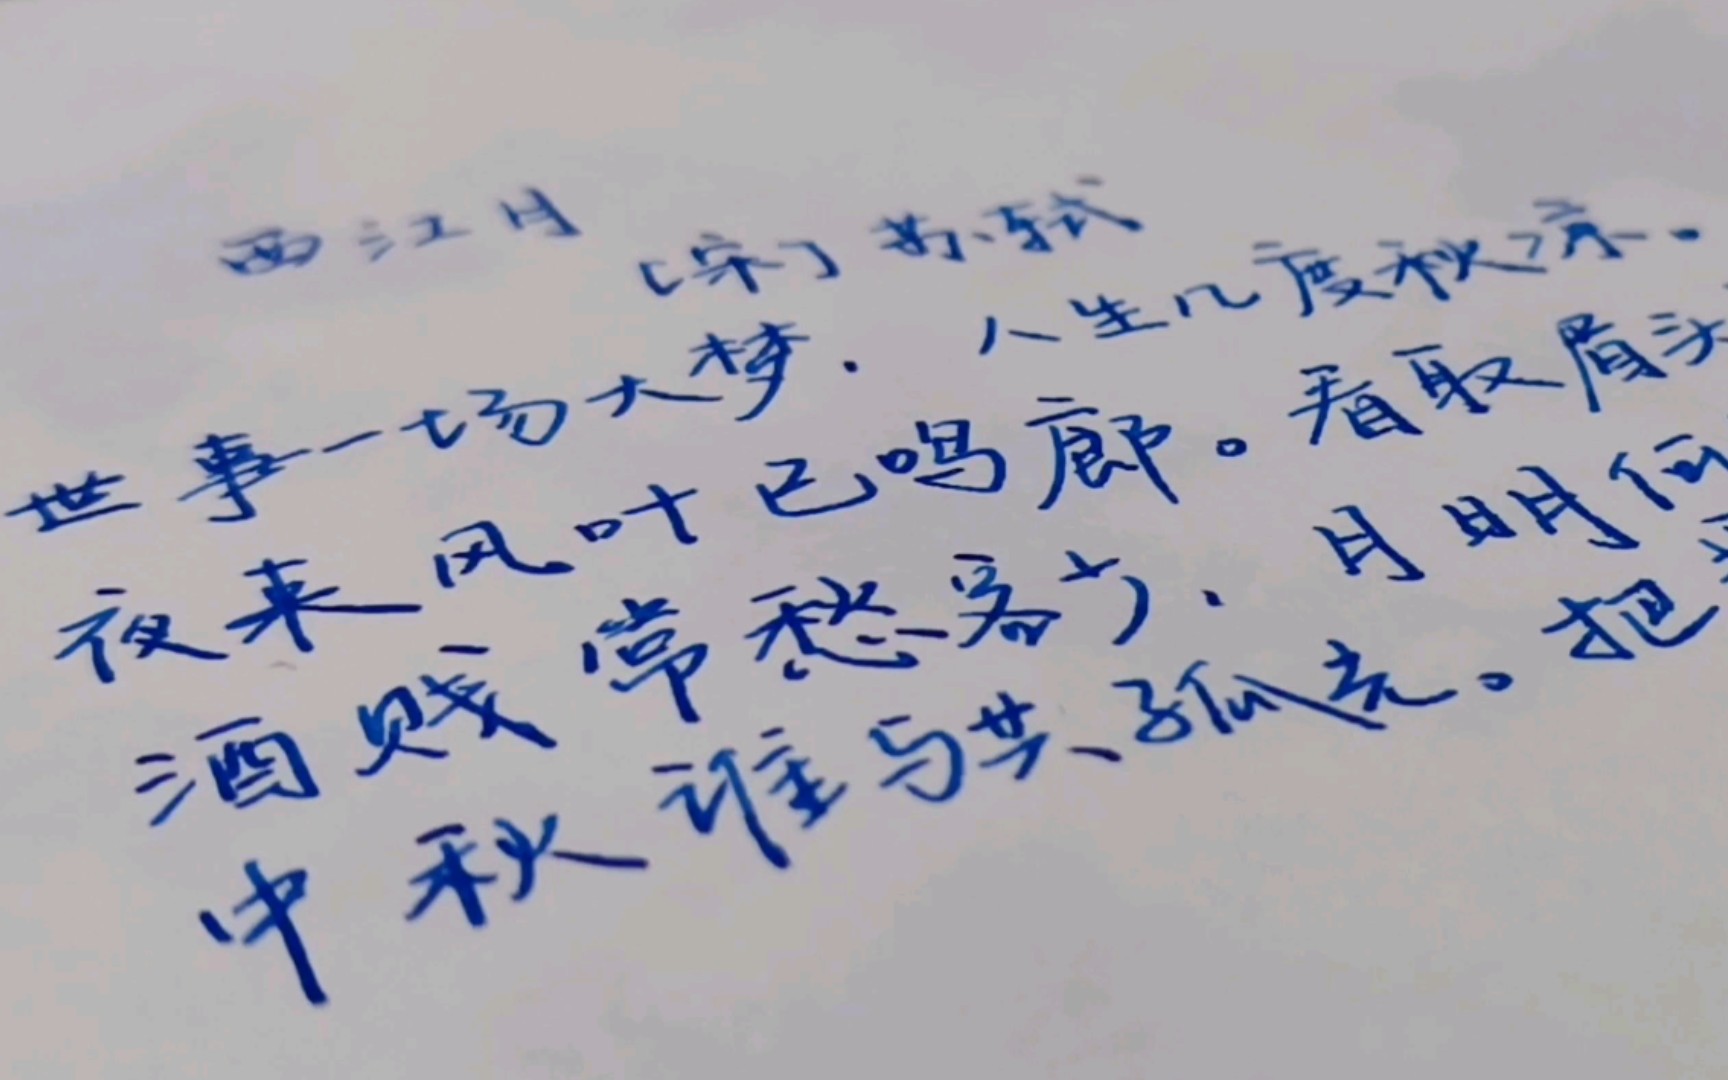 西江月
[宋] 苏轼
世事一场大梦. 人生几度秋凉。
夜来风叶已鸣廊。看取眉头
酒贱常愁客少. 月明
中秋谁与共孤光。把